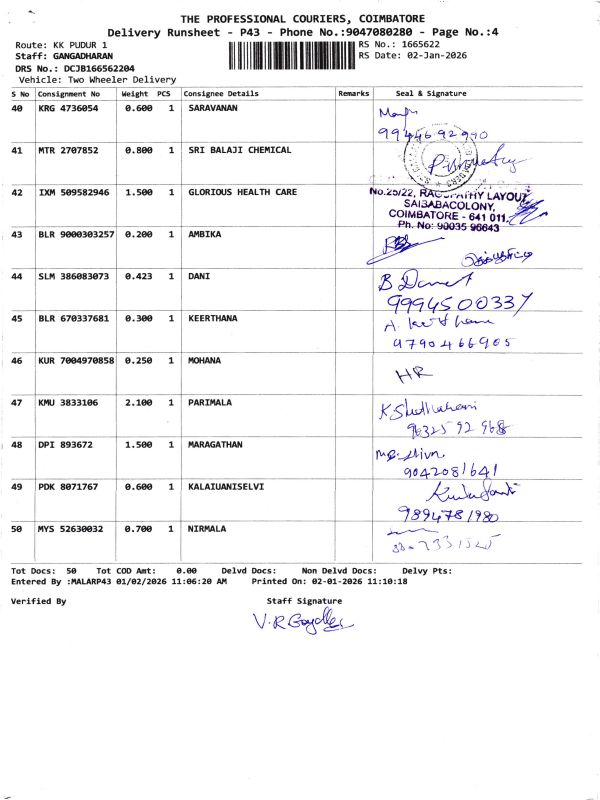 THE PROFESSIONAL COURIERS, COIMBATORE
Delivery Runsheet - P43 - Phone No.:9047080280 - Page No.:4
Route: KK PUDUR 1 RS No.: 1665622
Staff: GANGADHARAN RS Date: 02-Jan-2026
DRS No.: DCJB166562204
Vehicle: Two Wheeler Delivery
S No Consignment No Weight PCS Consignee Details Remarks Seal & Signature
40 KRG 4736054 0.600 1 SARAVANAN
9944692990
41 MTR 2707852 0.800 1 SRI BALAJI CHEMICAL
42 IXM 509582946 1.500 1 GLORIOUS HEALTH CARE
No.25/22, RAGUPATHY LAYOUT
SAIBABACOLONY,
COIMBATORE - 641 011.
Ph. No: 90035 96643
43 BLR 9000303257 0.200 1 AMBIKA
44 SLM 386083073 0.423 1 DANI
9994500337
45 BLR 670337681 0.300 1 KEERTHANA
9790466905
46 KUR 7004970858 0.250 1 MOHANA
HR
47 KMU 3833106 2.100 1 PARIMALA
48 DPI 893672 1.500 1 MARAGATHAN
9042081641
49 PDK 8071767 0.600 1 KALAIUANISELVI
9894781980
50 MYS 52630032 0.700 1 NIRMALA
Tot Docs: 50 Tot COD Amt: 0.00 Delvd Docs: Non Delvd Docs: Delvy Pts:
Entered By :MALARP43 01/02/2026 11:06:20 AM Printed On: 02-01-2026 11:10:18
Verified By Staff Signature